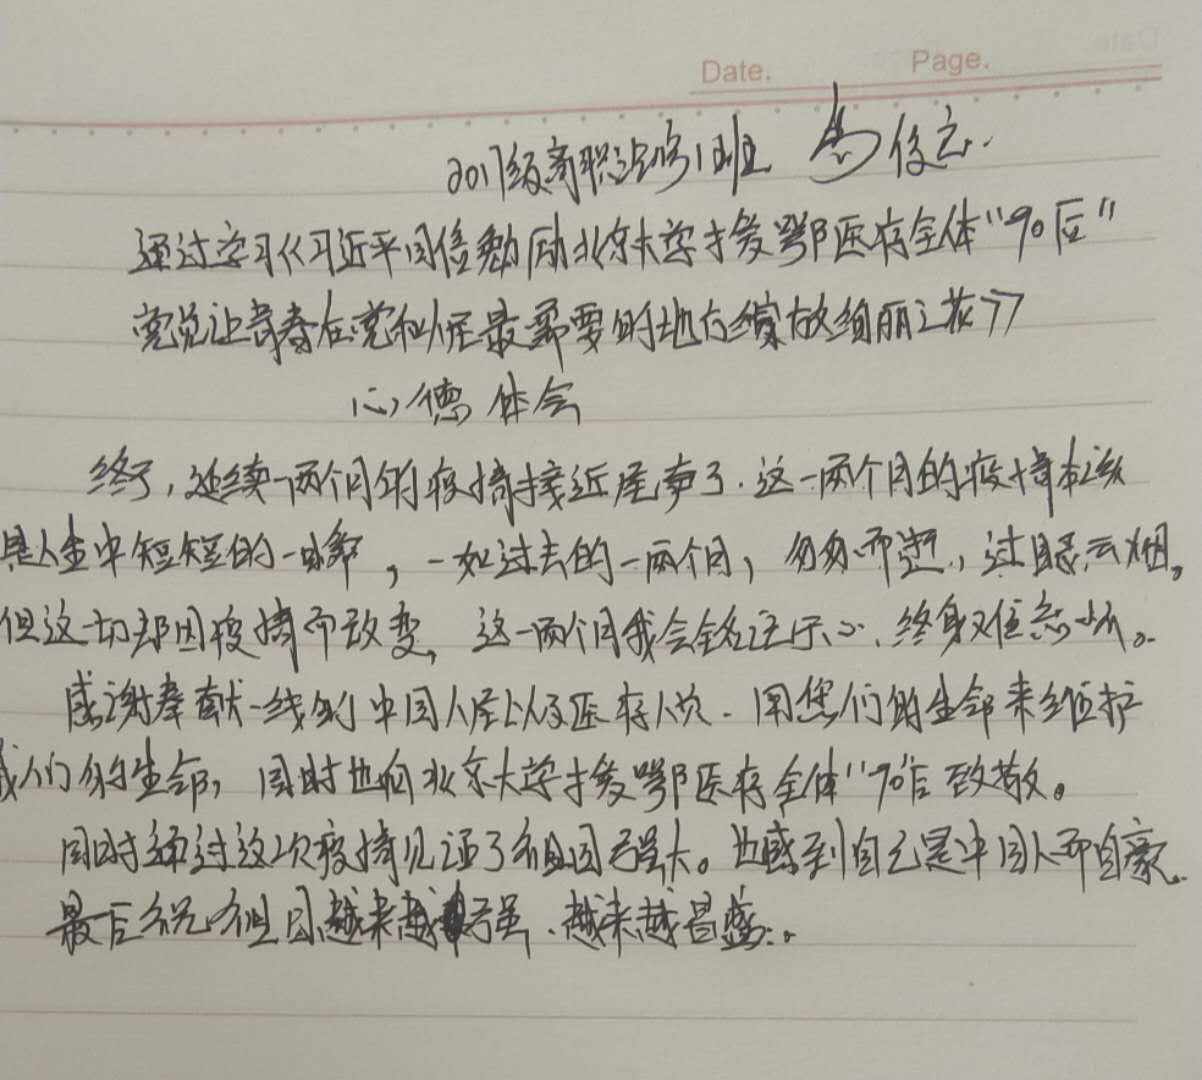 Date. Page.
2017级高职法学1班 马俊云.
通过学习《习近平回信勉励北京大学援鄂医疗全体“90后”
党员让青春在党和人民最需要的地方绽放绚丽之花》
心德体会
终于,延续一两个月的疫情接近尾声了.这一两个月的疫情本该
是人生中短短的一瞬,一如过去的一两个月,匆匆而逝,过眼云烟。
但这一切却因疫情而改变,这一两个月我会铭记于心.终身难忘怀。
感谢奉献一线的中国人民以及医疗人员.用您们的生命来维护
我们的生命,同时也向北京大学援鄂医疗全体“90后致敬。
同时通过这次疫情见证了祖国强大。也感到自己是中国人而自豪.
最后祝祖国越来越强.越来越昌盛。